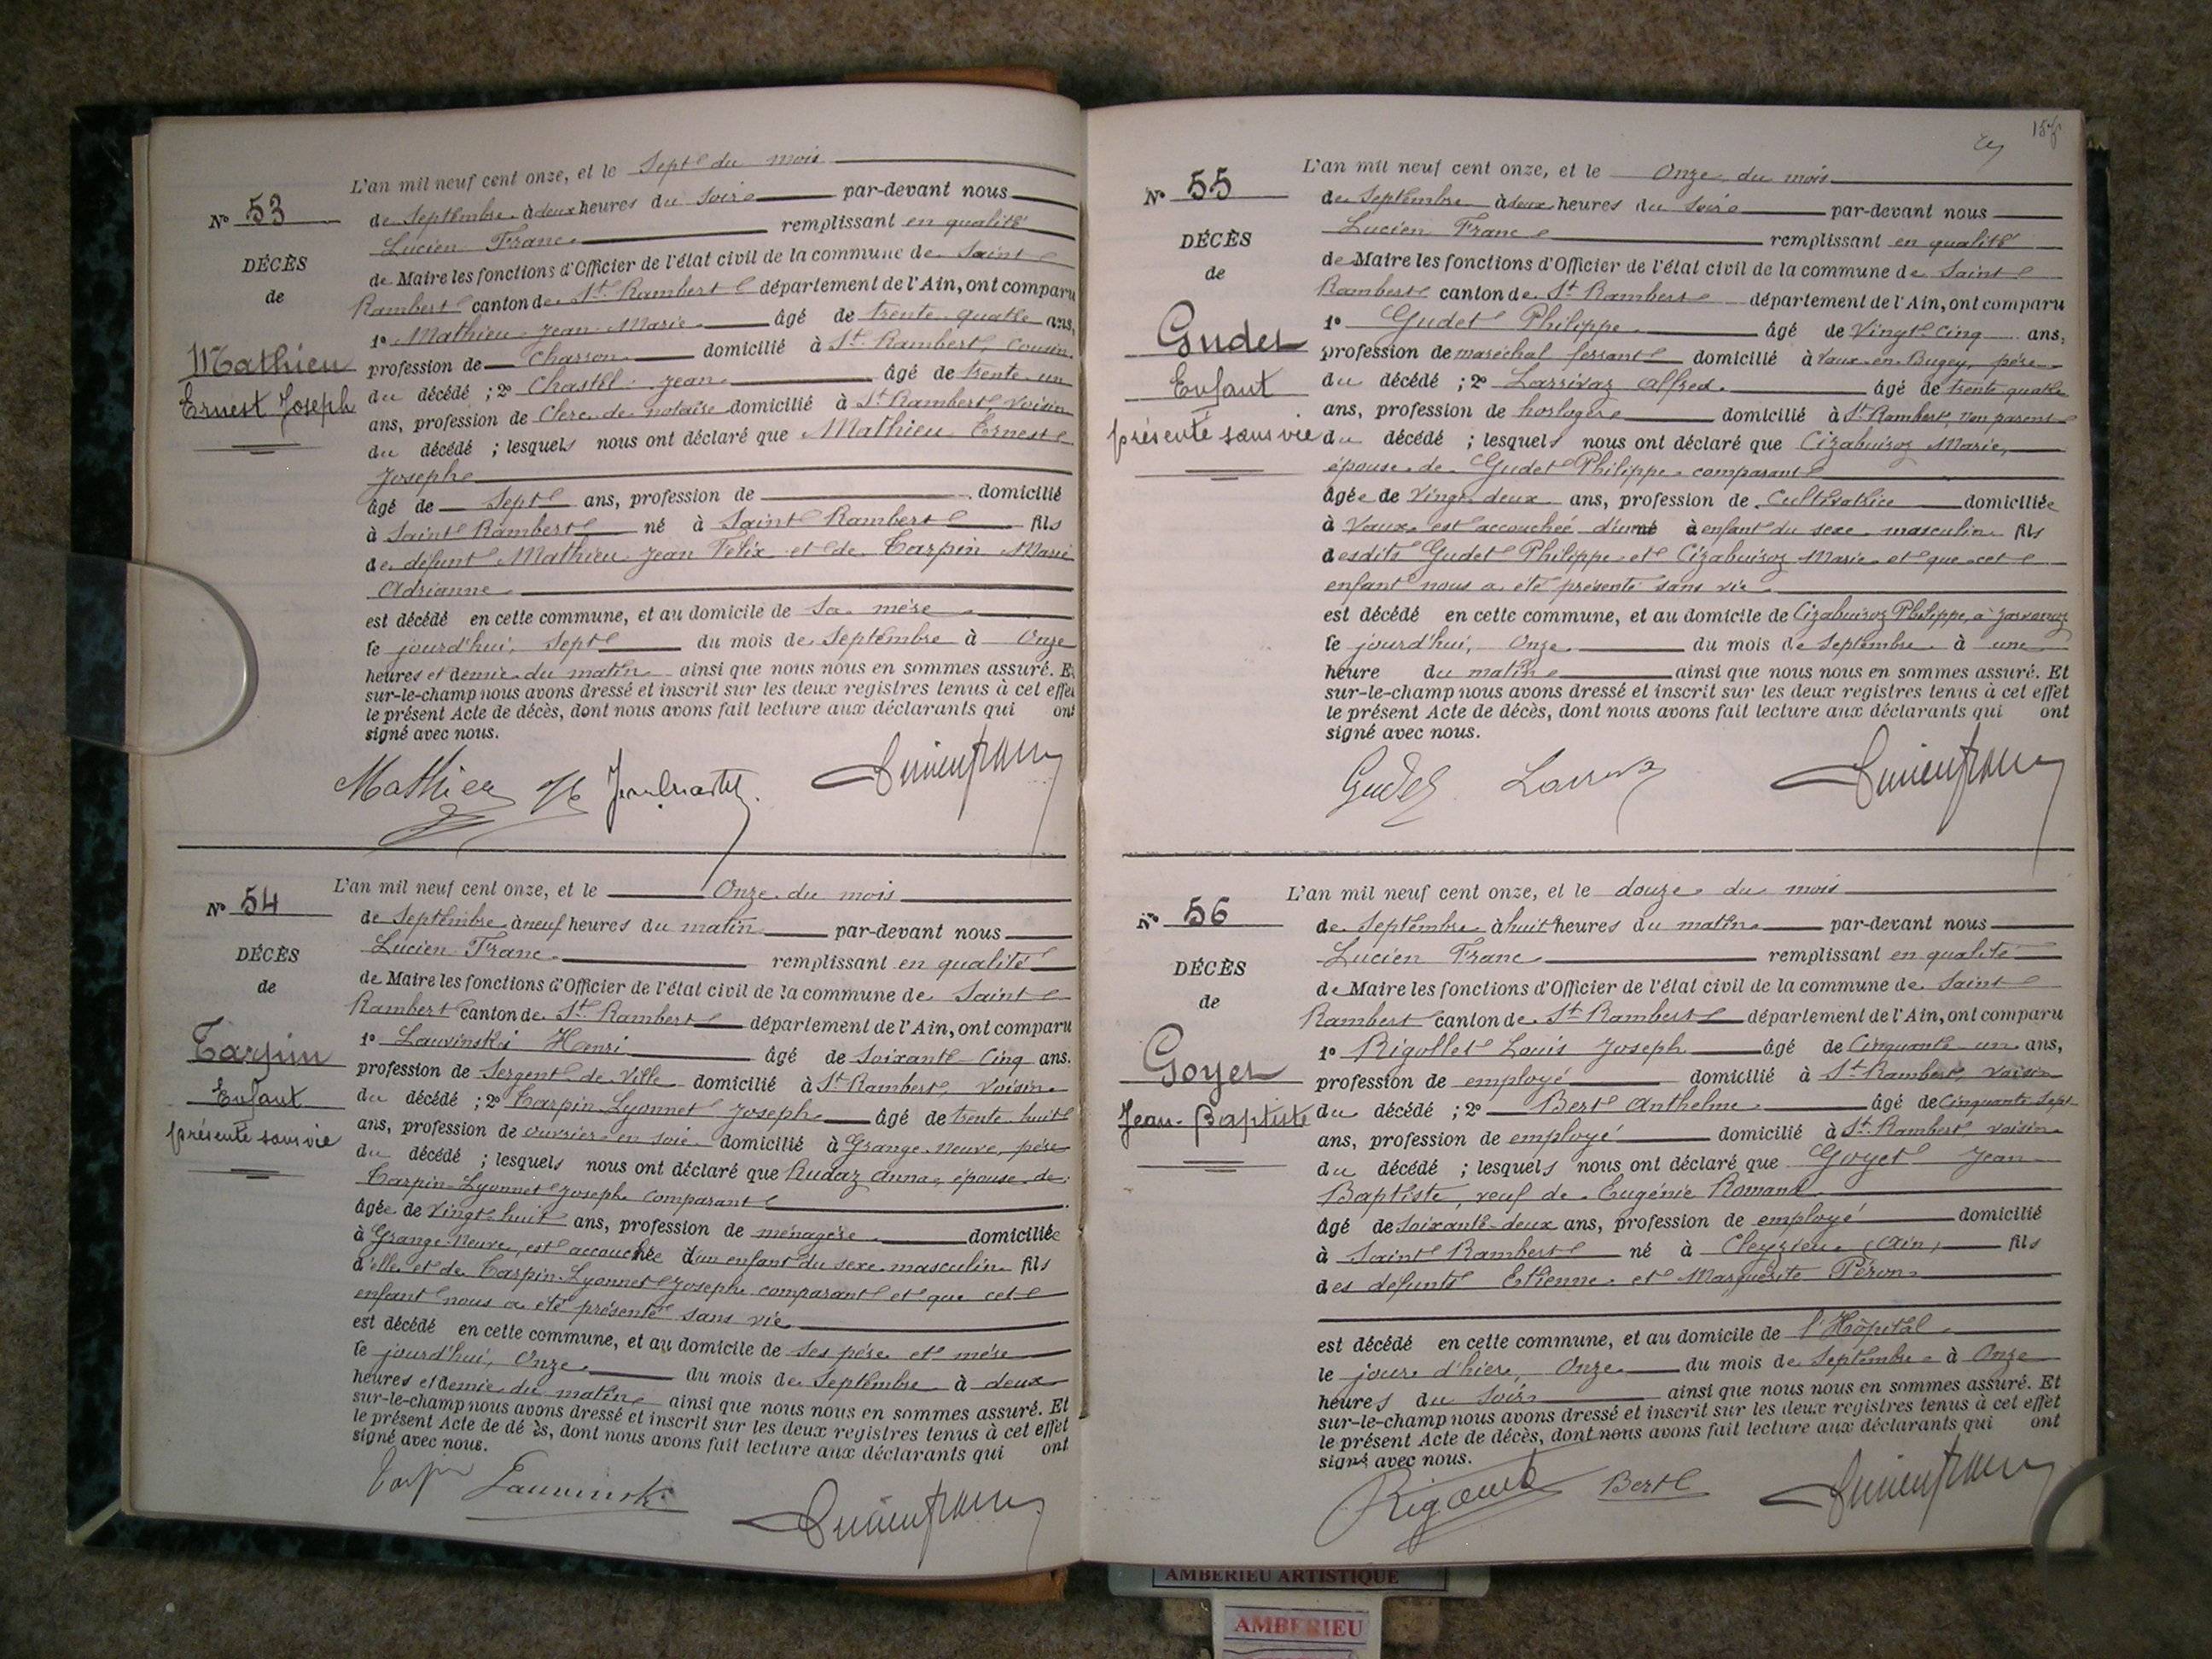 L'an mil neuf cent onze, et le Sept du mois
de Septembre à deux heures du soir par-devant nous
Lucien Franc remplissant en qualité
de Maire les fonctions d'Officier de l'état civil de la commune de Saint
Rambert canton de St Rambert département de l'Ain, ont comparu
1º Mathieu Jean Marie âgé de trente quatre ans,
profession de Charron domicilié à St Rambert, cousin
du décédé ; 2º Chastel Jean âgé de trente un
ans, profession de Clerc de notaire domicilié à St Rambert, voisin
du décédé ; lesquels nous ont déclaré que Mathieu Ernest
Joseph
âgé de Sept ans, profession de domicilié
à Saint Rambert né à Saint Rambert fils
de défunt Mathieu Jean Félix et de Tarpin Marie
Adrianne
est décédé en cette commune, et au domicile de sa mère
le jourd'hui, Sept du mois de Septembre à Onze
heures et demie du matin ainsi que nous nous en sommes assuré. Et
sur-le-champ nous avons dressé et inscrit sur les deux registres tenus à cet effet
le présent Acte de décès, dont nous avons fait lecture aux déclarants qui ont
signé avec nous.
Nº 53
DÉCÈS
de
Mathieu
Ernest Joseph
Mathieu Jean Chastel Lucien Franc
Nº 54
DÉCÈS
de
Tarpin
Enfant
présenté sans vie
L'an mil neuf cent onze, et le Onze du mois
de Septembre à neuf heures du matin par-devant nous
Lucien Franc remplissant en qualité
de Maire les fonctions d'Officier de l'état civil de la commune de Saint
Rambert canton de St Rambert département de l'Ain, ont comparu
1º Lauvinski Henri âgé de Soixante Cinq ans.
profession de Sergent de Ville domicilié à St Rambert, voisin
du décédé ; 2º Tarpin-Lyonnet Joseph âgé de trente huit
ans, profession de ouvrier en soie domicilié à Grange-Neuve, père
du décédé ; lesquels nous ont déclaré que Rudaz Anna, épouse de
Tarpin-Lyonnet Joseph comparant
âgée de Vingt huit ans, profession de ménagère domiciliée
à Grange-Neuve, est accouchée d'un enfant du sexe masculin fils
d'elle et de Tarpin-Lyonnet Joseph comparant et que cet
enfant nous a été présenté sans vie
est décédé en cette commune, et au domicile de ses père et mère
le jourd'hui, Onze du mois de Septembre à deux
heures et demie du matin ainsi que nous nous en sommes assuré. Et
sur-le-champ nous avons dressé et inscrit sur les deux registres tenus à cet effet
le présent Acte de dé ès, dont nous avons fait lecture aux déclarants qui ont
signé avec nous.
Tarpin Lauvinski Lucien Franc
Nº 55
DÉCÈS
de
Gudet
Enfant
présenté sans vie
L'an mil neuf cent onze, et le Onze du mois
de Septembre à deux heures du soir par-devant nous
Lucien Franc remplissant en qualité
de Maire les fonctions d'Officier de l'état civil de la commune de Saint
Rambert canton de St Rambert département de l'Ain, ont comparu
1º Gudet Philippe âgé de Vingt Cinq ans,
profession de maréchal ferrant domicilié à Vaux-en-Bugey, père
du décédé ; 2º Larrivaz Alfred âgé de trente quatre
ans, profession de horloger domicilié à St Rambert, non parent
du décédé ; lesquels nous ont déclaré que Cizabuiroz Marie,
épouse de Gudet Philippe comparant
âgée de Vingt deux ans, profession de Cultivatrice domiciliée
à Vaux est accouchée d'un né à enfant du sexe masculin fils
desdits Gudet Philippe et Cizabuiroz Marie et que cet
enfant nous a été présenté sans vie
est décédé en cette commune, et au domicile de Cizabuiroz Philippe, à
le jourd'hui, Onze du mois de Septembre à une
heure du matin ainsi que nous nous en sommes assuré. Et
sur-le-champ nous avons dressé et inscrit sur les deux registres tenus à cet effet
le présent Acte de décès, dont nous avons fait lecture aux déclarants qui ont
signé avec nous.
Gudet Larrivaz Lucien Franc
Nº 56
DÉCÈS
de
Goyet
Jean-Baptiste
L'an mil neuf cent onze, et le douze du mois
de Septembre à huit heures du matin par-devant nous
Lucien Franc remplissant en qualité
de Maire les fonctions d'Officier de l'état civil de la commune de Saint
Rambert canton de St Rambert département de l'Ain, ont comparu
1º Rigollet Louis Joseph âgé de Cinquante un ans,
profession de employé domicilié à St Rambert, voisin
du décédé ; 2º Bert Anthelme âgé de Cinquante Sept
ans, profession de employé domicilié à St Rambert, voisin
du décédé ; lesquels nous ont déclaré que Goyet Jean
Baptiste, veuf de Eugénie Romand
âgé de soixante-deux ans, profession de employé domicilié
à Saint Rambert né à Cleyzieu (Ain) fils
des défunts Etienne et Marguerite Péron
est décédé en cette commune, et au domicile de l'Hôpital
le jour d'hier, Onze du mois de Septembre à Onze
heures du soir ainsi que nous nous en sommes assuré. Et
sur-le-champ nous avons dressé et inscrit sur les deux registres tenus à cet effet
le présent Acte de décès, dont nous avons fait lecture aux déclarants qui ont
signé avec nous.
Bert Lucien Franc
AMBERIEU ARTISTIQUE
AMBERIEU